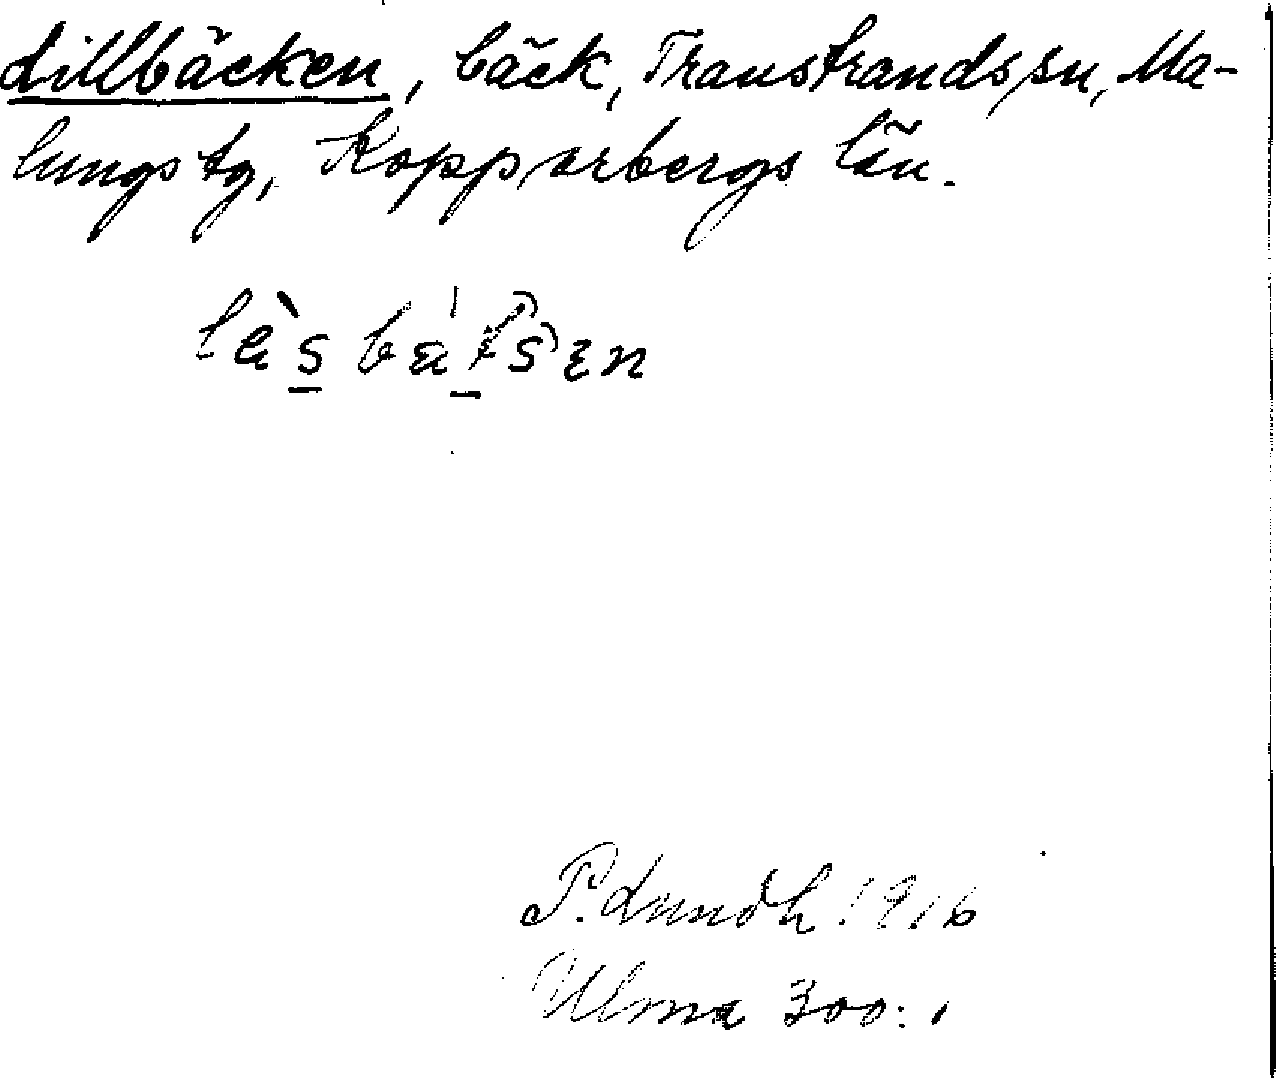 Lillbäcken, bäck, Transtrands sn, Ma-
lungs tg, Kopparbergs län.
P. Lundh 1916
Ulma 300:1